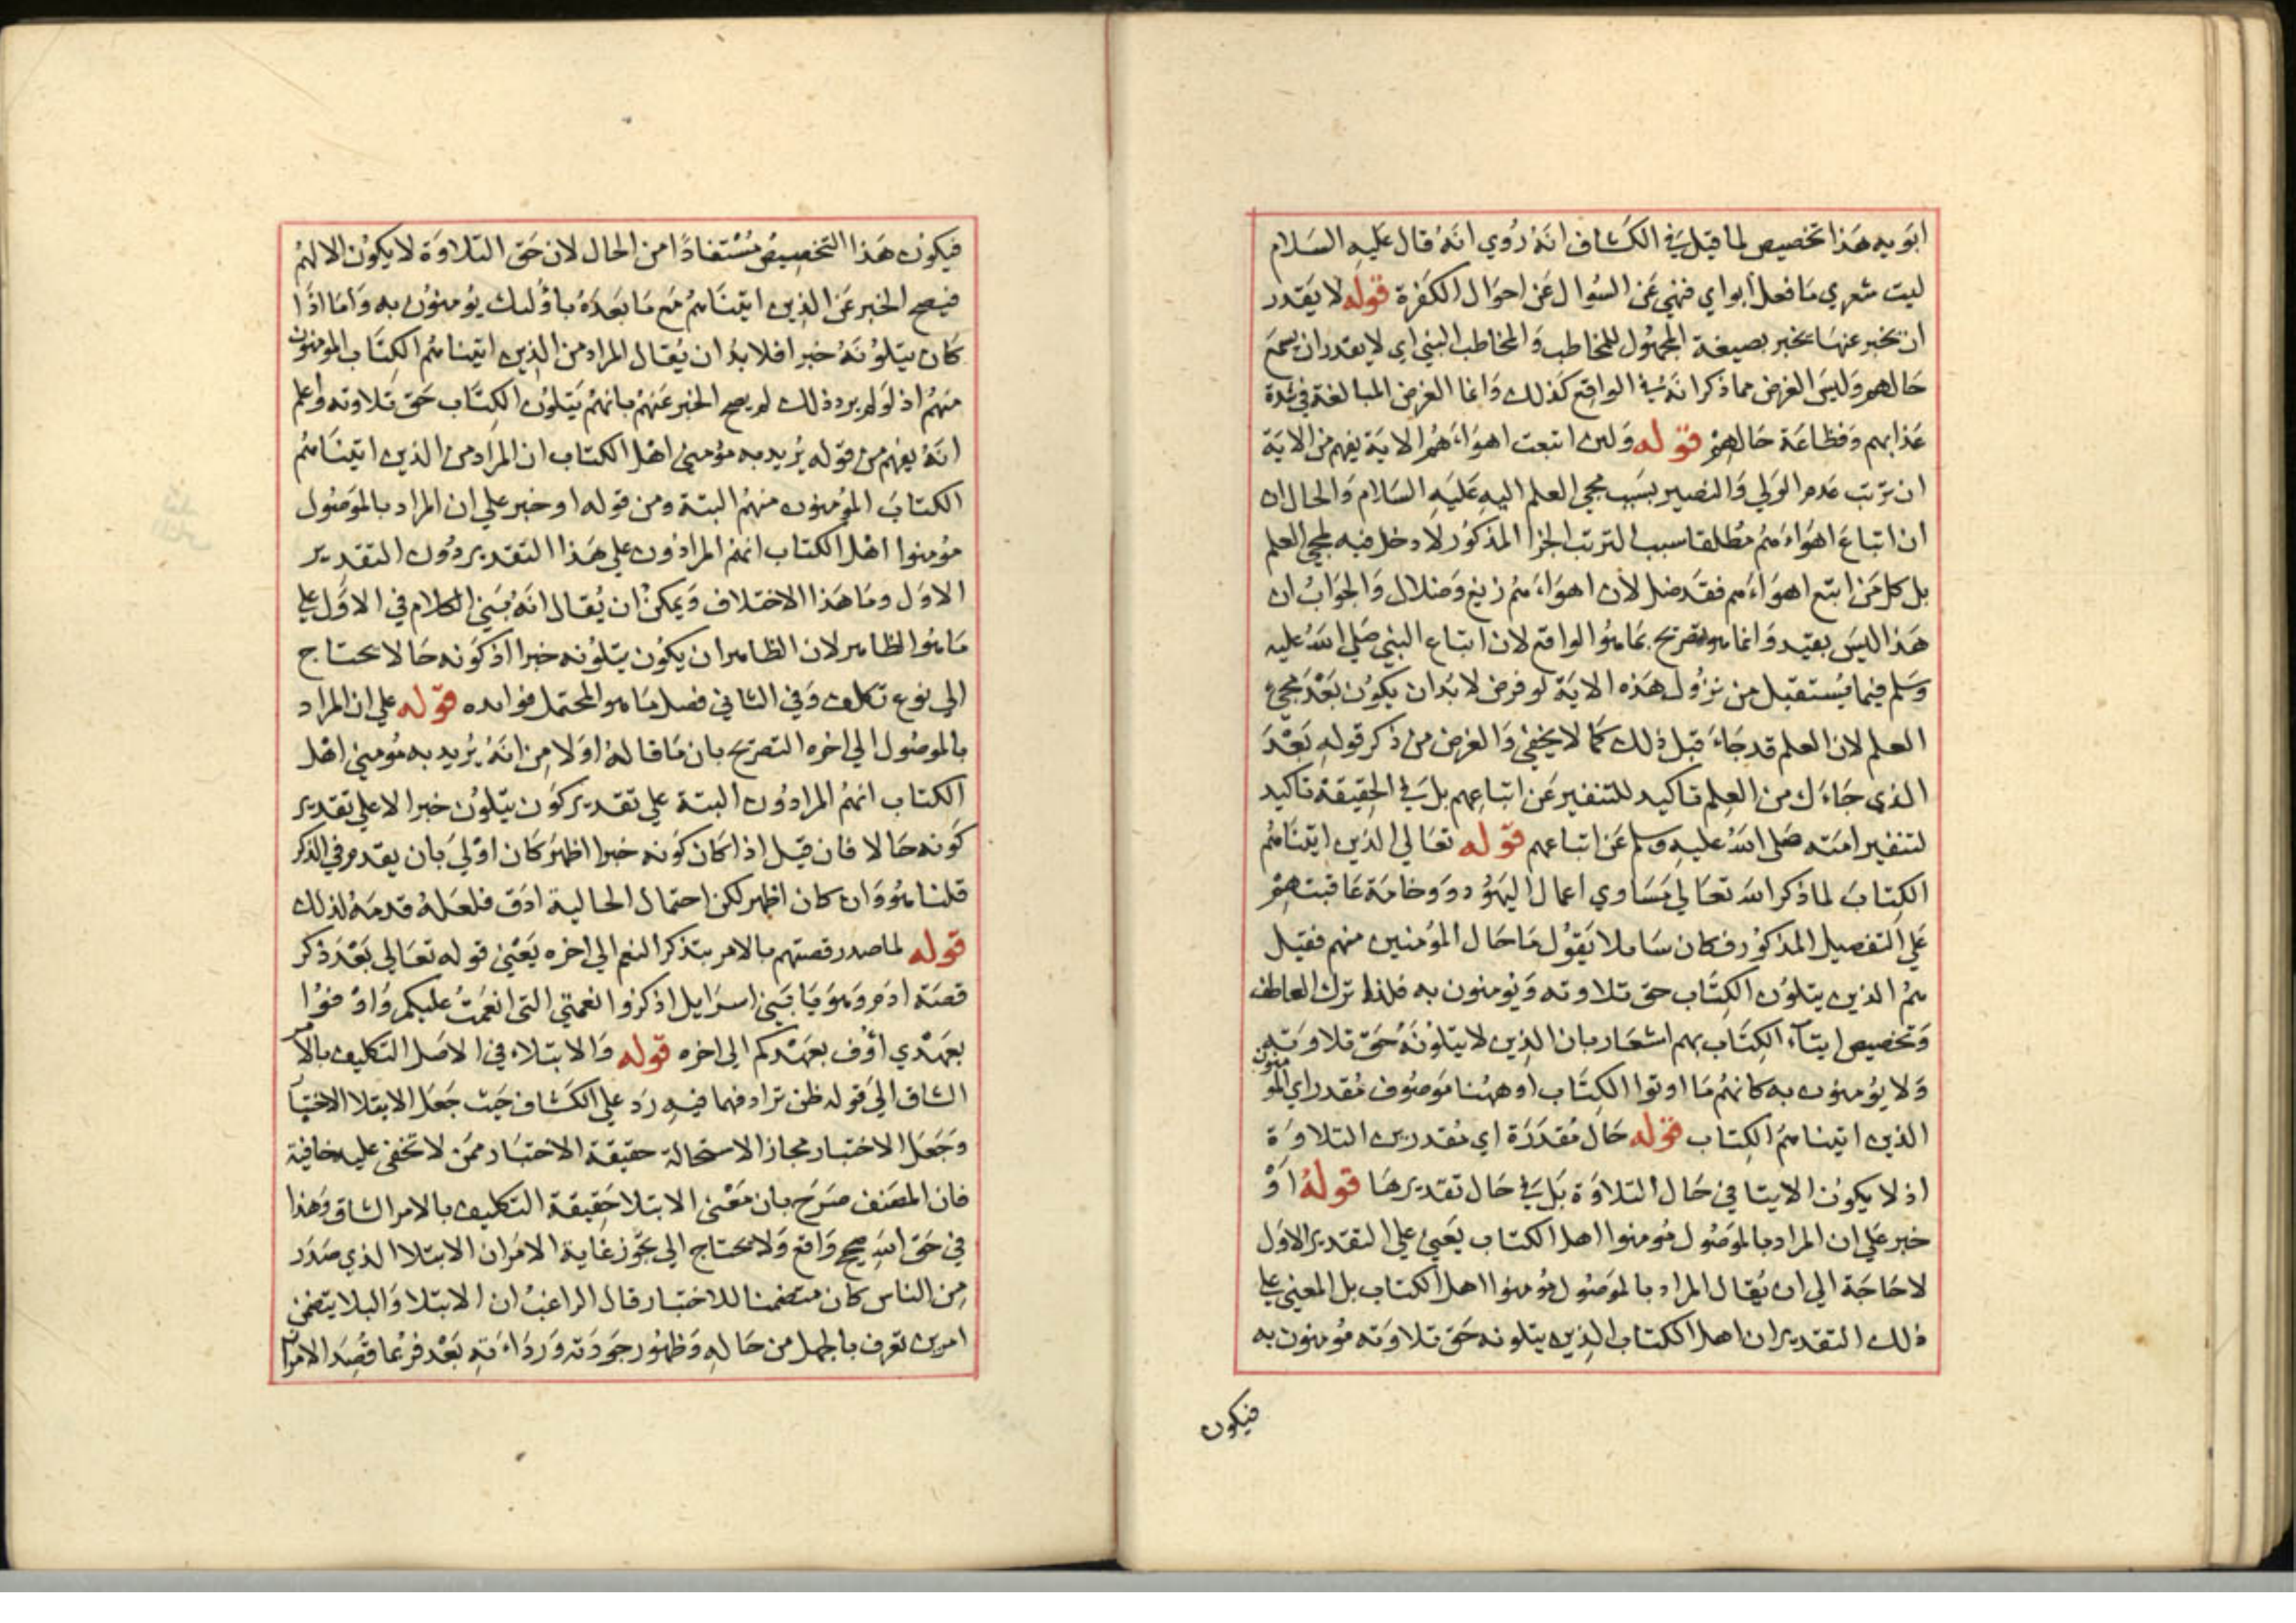 ابويه هذا تخصيص لما قيل في الكشاف انه روي انه قال عليه السلام
ليت شعري ما فعل أبواي فنهي عن السوال عن احوال الكفرة قوله لا يقدر
ان تخبر عنها يخبر بصيغة المجهول للمخاطب والمخاطب النبي اي لا يقدر ان يسمع
حالهم وليس الغرض مما ذكر انه في الواقع كذلك وانما الغرض المبالغة في شدة
عذابهم وفظاعة حالهم قوله ولين اتبعت اهواءهم الاية يفهم من الاية
ان ترتب عدم الولي والنصير بسبب مجي العلم اليه عليه السلام والحال ان
ان اتباع اهواءهم مطلقا سبب الترتب الجزا المذكور لا دخل فيه لمجي العلم
بل كل من اتبع اهواءهم فقد ضل لان اهواءهم زيغ وضلال والجواب ان
هذا ليس بقيد وانما هو تصريح بما هو الواقع لان اتباع النبي صلي الله عليه
وسلم فيما يستقبل من نزول هذه الاية لو فرض لا بد ان يكون بعد مجيء
العلم لان العلم قد جاء قبل ذلك كما لا يخفي والغرض من ذكر قوله بعد
الذي جاءك من العلم تاكيد للتنفير عن اتباعهم بل في الحقيقة تاكيد
لتنفير امته صلى الله عليه وسلم عن اتباعهم قوله تعالي الذين اتيناهم
الكتاب لما ذكر الله تعالي مساوي اعمال اليهود ووخامة عاقبتهم
علي التفصيل المذكور فكان ساملا يقول ما حال المؤمنين منهم فقيل
هم الذين يتلون الكتاب حق تلاوته ويومنون به فلذا ترك العاطف
وتخصيص ايتآء الكتاب بهم اشعار بان الذين لا يتلونه حق تلاوته
ولا يؤمنون به كانهم ما اوتوا الكتاب او ههنا موصوف مقدر اي المومنون
الذين اتيناهم الكتاب قوله حال مقدرة اي مقدرين التلاوة
اذ لا يكون الايتا في حال التلاوة بل في حال تقديرها قوله او
خبر علي ان المراد بالموصول مومنوا اهل الكتاب يعني علي التقدير الاول
لا حاجة الي ان يقال المراد بالموصول مؤمنوا اهل الكتاب بل المعني علي
ذلك التقدير ان اهل الكتاب الذين يتلونه حق تلاوته مومنون به
فيكون
فيكون هذا التخصيص مستفادا من الحال لان حق التلاوة لا يكون الا لهم
فيصح الخبر عن الذين اتيناهم مع ما بعده باولئك يومنون به واما اذا
كان يتلونه خبرا فلا بد ان يقال المراد من الذين اتيناهم الكتاب المومنون
منهم اذ لو لم يرد ذلك لم يصح الخبر عنهم بانهم يتلون الكتاب حق تلاوته واعلم
انه يفهم من قوله يريد به مؤمني اهل الكتاب ان المراد من الذين اتيناهم
الكتاب المؤمنون منهم البتة ومن قوله او خبر علي ان المراد بالموصول
مؤمنوا اهل الكتاب انهم المرادون علي هذا التقدير دون التقدير
الاول وما هذا الاختلاف ويمكن ان يقال انه بني الكلام في الاول علي
ما هو الظاهر لان الظاهر ان يكون يتلونه خبرا اذ كونه حالا يحتاج
الي نوع تكلف وفي الثاني فصل ما هو المحتمل فوايده قوله علي ان المراد
بالموصول الي اخره التصريح بان ما قاله اولا من انه يريد به مؤمني اهل
الكتاب انهم المرادون البتة علي تقدير كون يتلون خبرا لا علي تقدير
كونه حالا فان قيل اذا كان كونه خبرا اظهر كان اولي بان يقدم في الذكر
قلنا هو وان كان اظهر لكن احتمال الحالية ادق فلعله قدمه لذلك
قوله لما صدر قصتهم بالامر بتذكر النعم الي اخره يعني قوله تعالي بعد ذكر
قصة ادم وهو يا بني اسرايل اذكروا نعمتي التي انعمت عليكم واوفوا
بعهدي أوف بعهدكم الي اخره قوله والابتلاء في الاصل التكليف بالامر
الشاق الي قوله ظن ترادفهما فيه رد علي الكشاف حيث جعل الابتلا الاختبار
وجعل الاختبار مجازا لاستحالة حقيقة الاختبار ممن لا تخفى عليه خافية
فان المصنف صرح بان معني الابتلا حقيقة التكليف بالامر الشاق وهذا
في حق الله صحيح واقع ولا يحتاج الي تجوز غاية الامر ان الابتلا الذي صدر
من الناس كان متضمنا للاختبار قال الراغب ان الابتلا والبلا يتضمن
امرين تعرف ما جهل من حاله وظهور جودته ورداءته بعد فربما قصد الامران